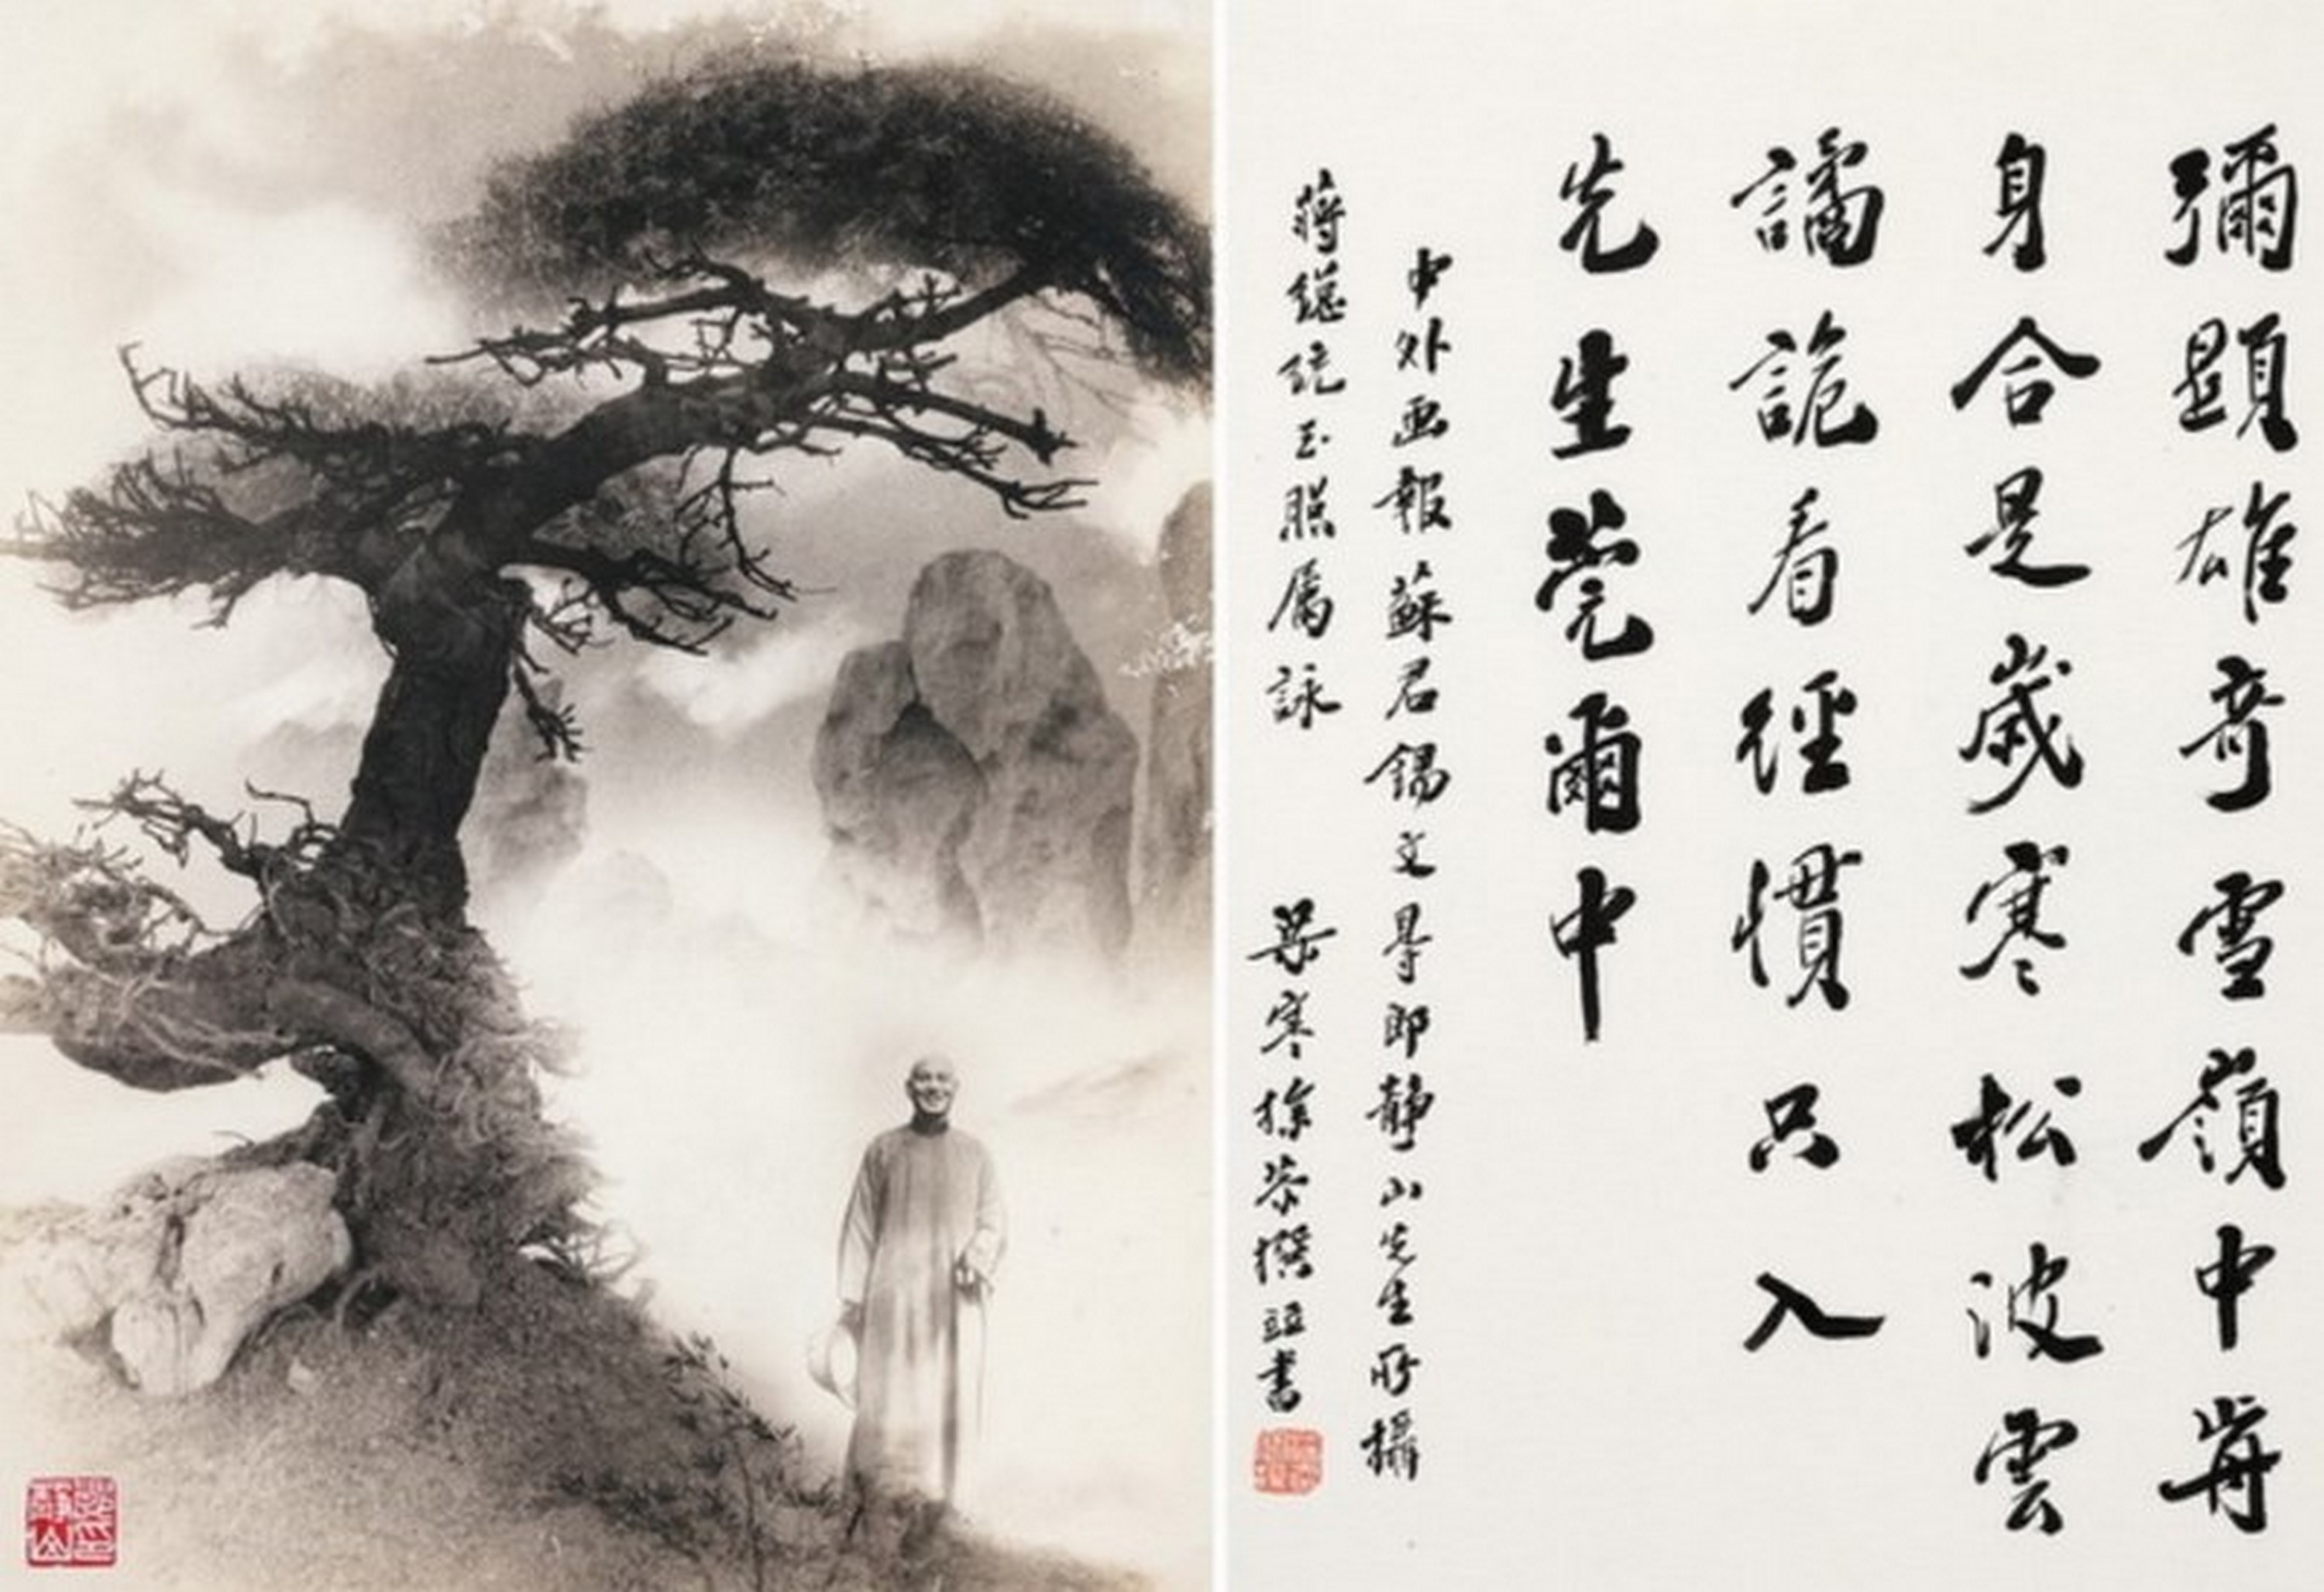 彌顯雄奇雪嶺中前
身合是歲寒松波雲
譎詭看徑慣只入
先生莞爾中
中外画報蘇君錫文㝵郎靜山先生所攝
蔣總統玉照屬詠 梁寒操恭撰並書